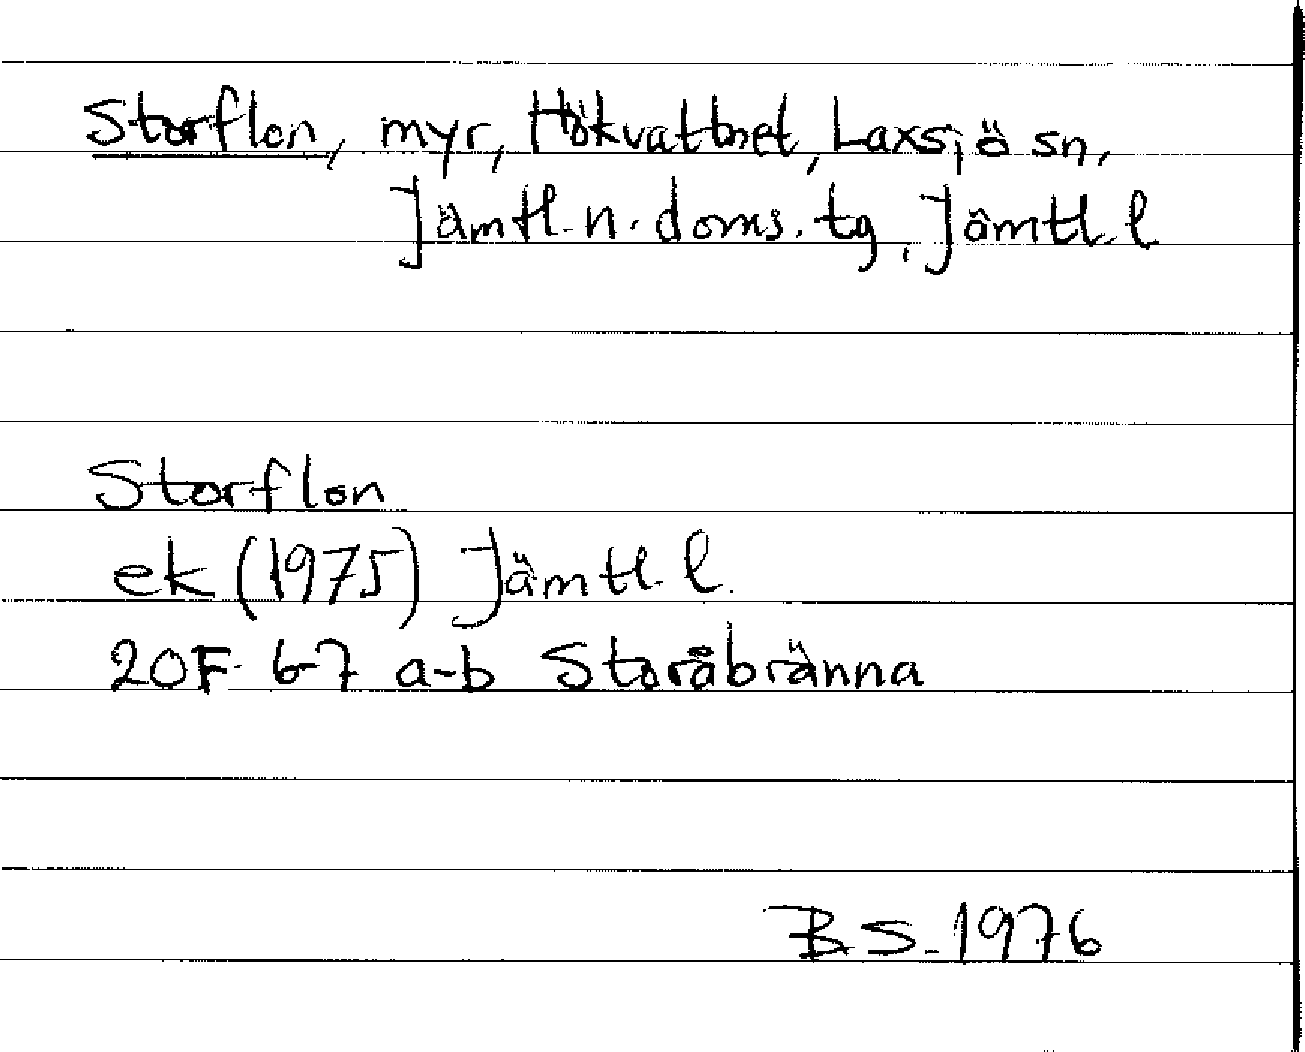 Storflon, myr, Hökvattnet, Laxsjö sn,
Jämtl. n. doms. tg, Jämtl. l
Storflon
ek (1975) Jämtl. l.
20F 6-7 a-b Storåbränna
B S. 1976